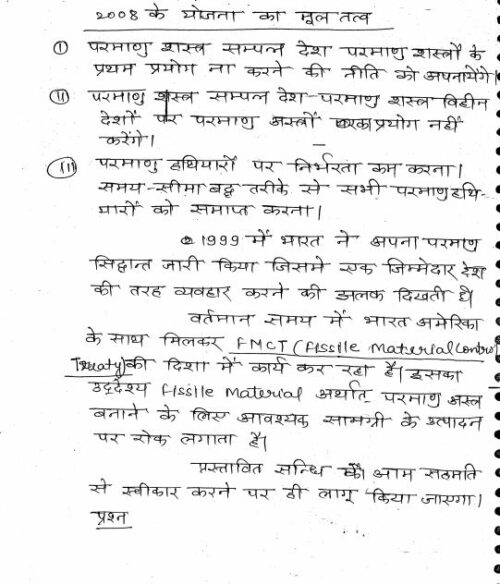 2008 के योजना का मूल तत्व
(i) परमाणु शस्त्र सम्पल देश परमाणु शस्त्रों के
प्रथम प्रयोग ना करने की नीति को अपनायेंगे।
(ii) परमाणु शस्त्र सम्पल देश-परमाणु शस्त्र विहीन
देशों पर परमाणु अस्त्रों प्रयोग नहीं
करेंगे।
(iii) परमाणु हथियारों पर निर्भरता कम करना।
समय-सीमा बद्ध तरीके से सभी परमाणु हथि-
यारों को समाप्त करना।
1999 में भारत ने अपना परमाणु
सिद्वान्त जारी किया जिसमे एक जिम्मेदार देश
की तरह व्यवहार करने की झलक दिखती है।
वर्तमान समय में भारत अमेरिका
के साथ मिलकर FMCT (Fissile Material Control
Treaty) की दिशा में कार्य कर रहा है। इसका
उद्देश्य Fissile Material अर्थात् परमाणु अस्त्र
बनाने के लिए आवश्यक सामग्री के उत्पादन
पर रोक लगाता है।
प्रस्तावित सन्धि को आम सहमति
से स्वीकार करने पर ही लागू किया जाएगा।
प्रश्न